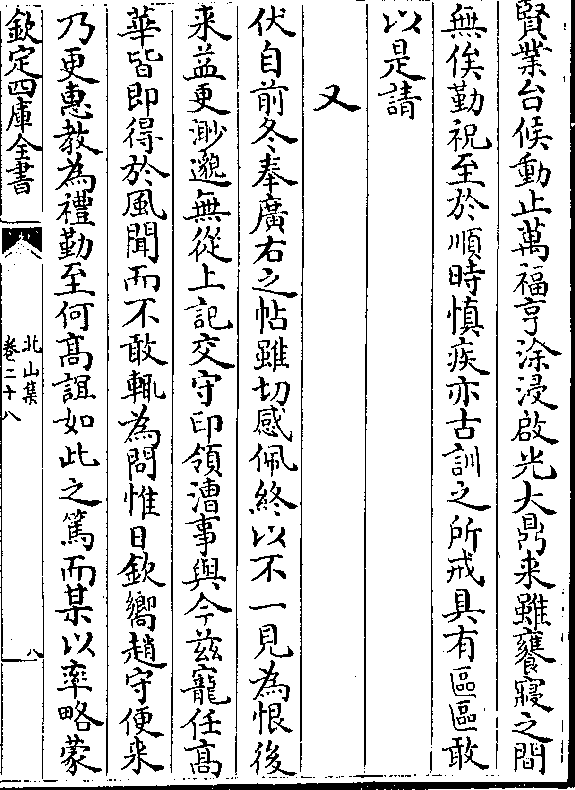 賢業台候動止萬福亨塗浸啟光大鼎来雖饔寢之間
無俟勤祝至於順時慎疾亦古訓之所戒具有區區敢
以是請
又
伏自前冬奉廣右之帖雖切感佩終以不一見為恨後
来益更渺邈無從上記交守印領漕事與今兹寵任髙
華皆即得於風聞而不敢輒為問惟日欽嚮趙守便来
乃更惠教為禮勤至何髙誼如此之篤而某以率略蒙
欽定四庫全書
北山集
卷二十八
八